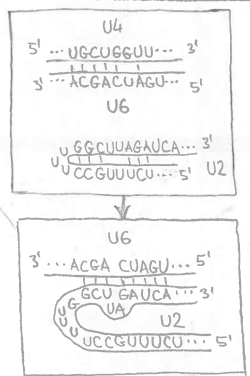 U4
5' ... UGCUGGUU ... 3'
3' ... ACGACUAGU ... 5'
U6
U GGCUUAGAUCA ... 3'
U
U CCGUUUCU ... 5' U2
U6
3' ... ACGA CUAGU ... 5'
GCU GAUCA ... 3'
G UA
U
U
U U2
UCCGUUUCU ... 5'